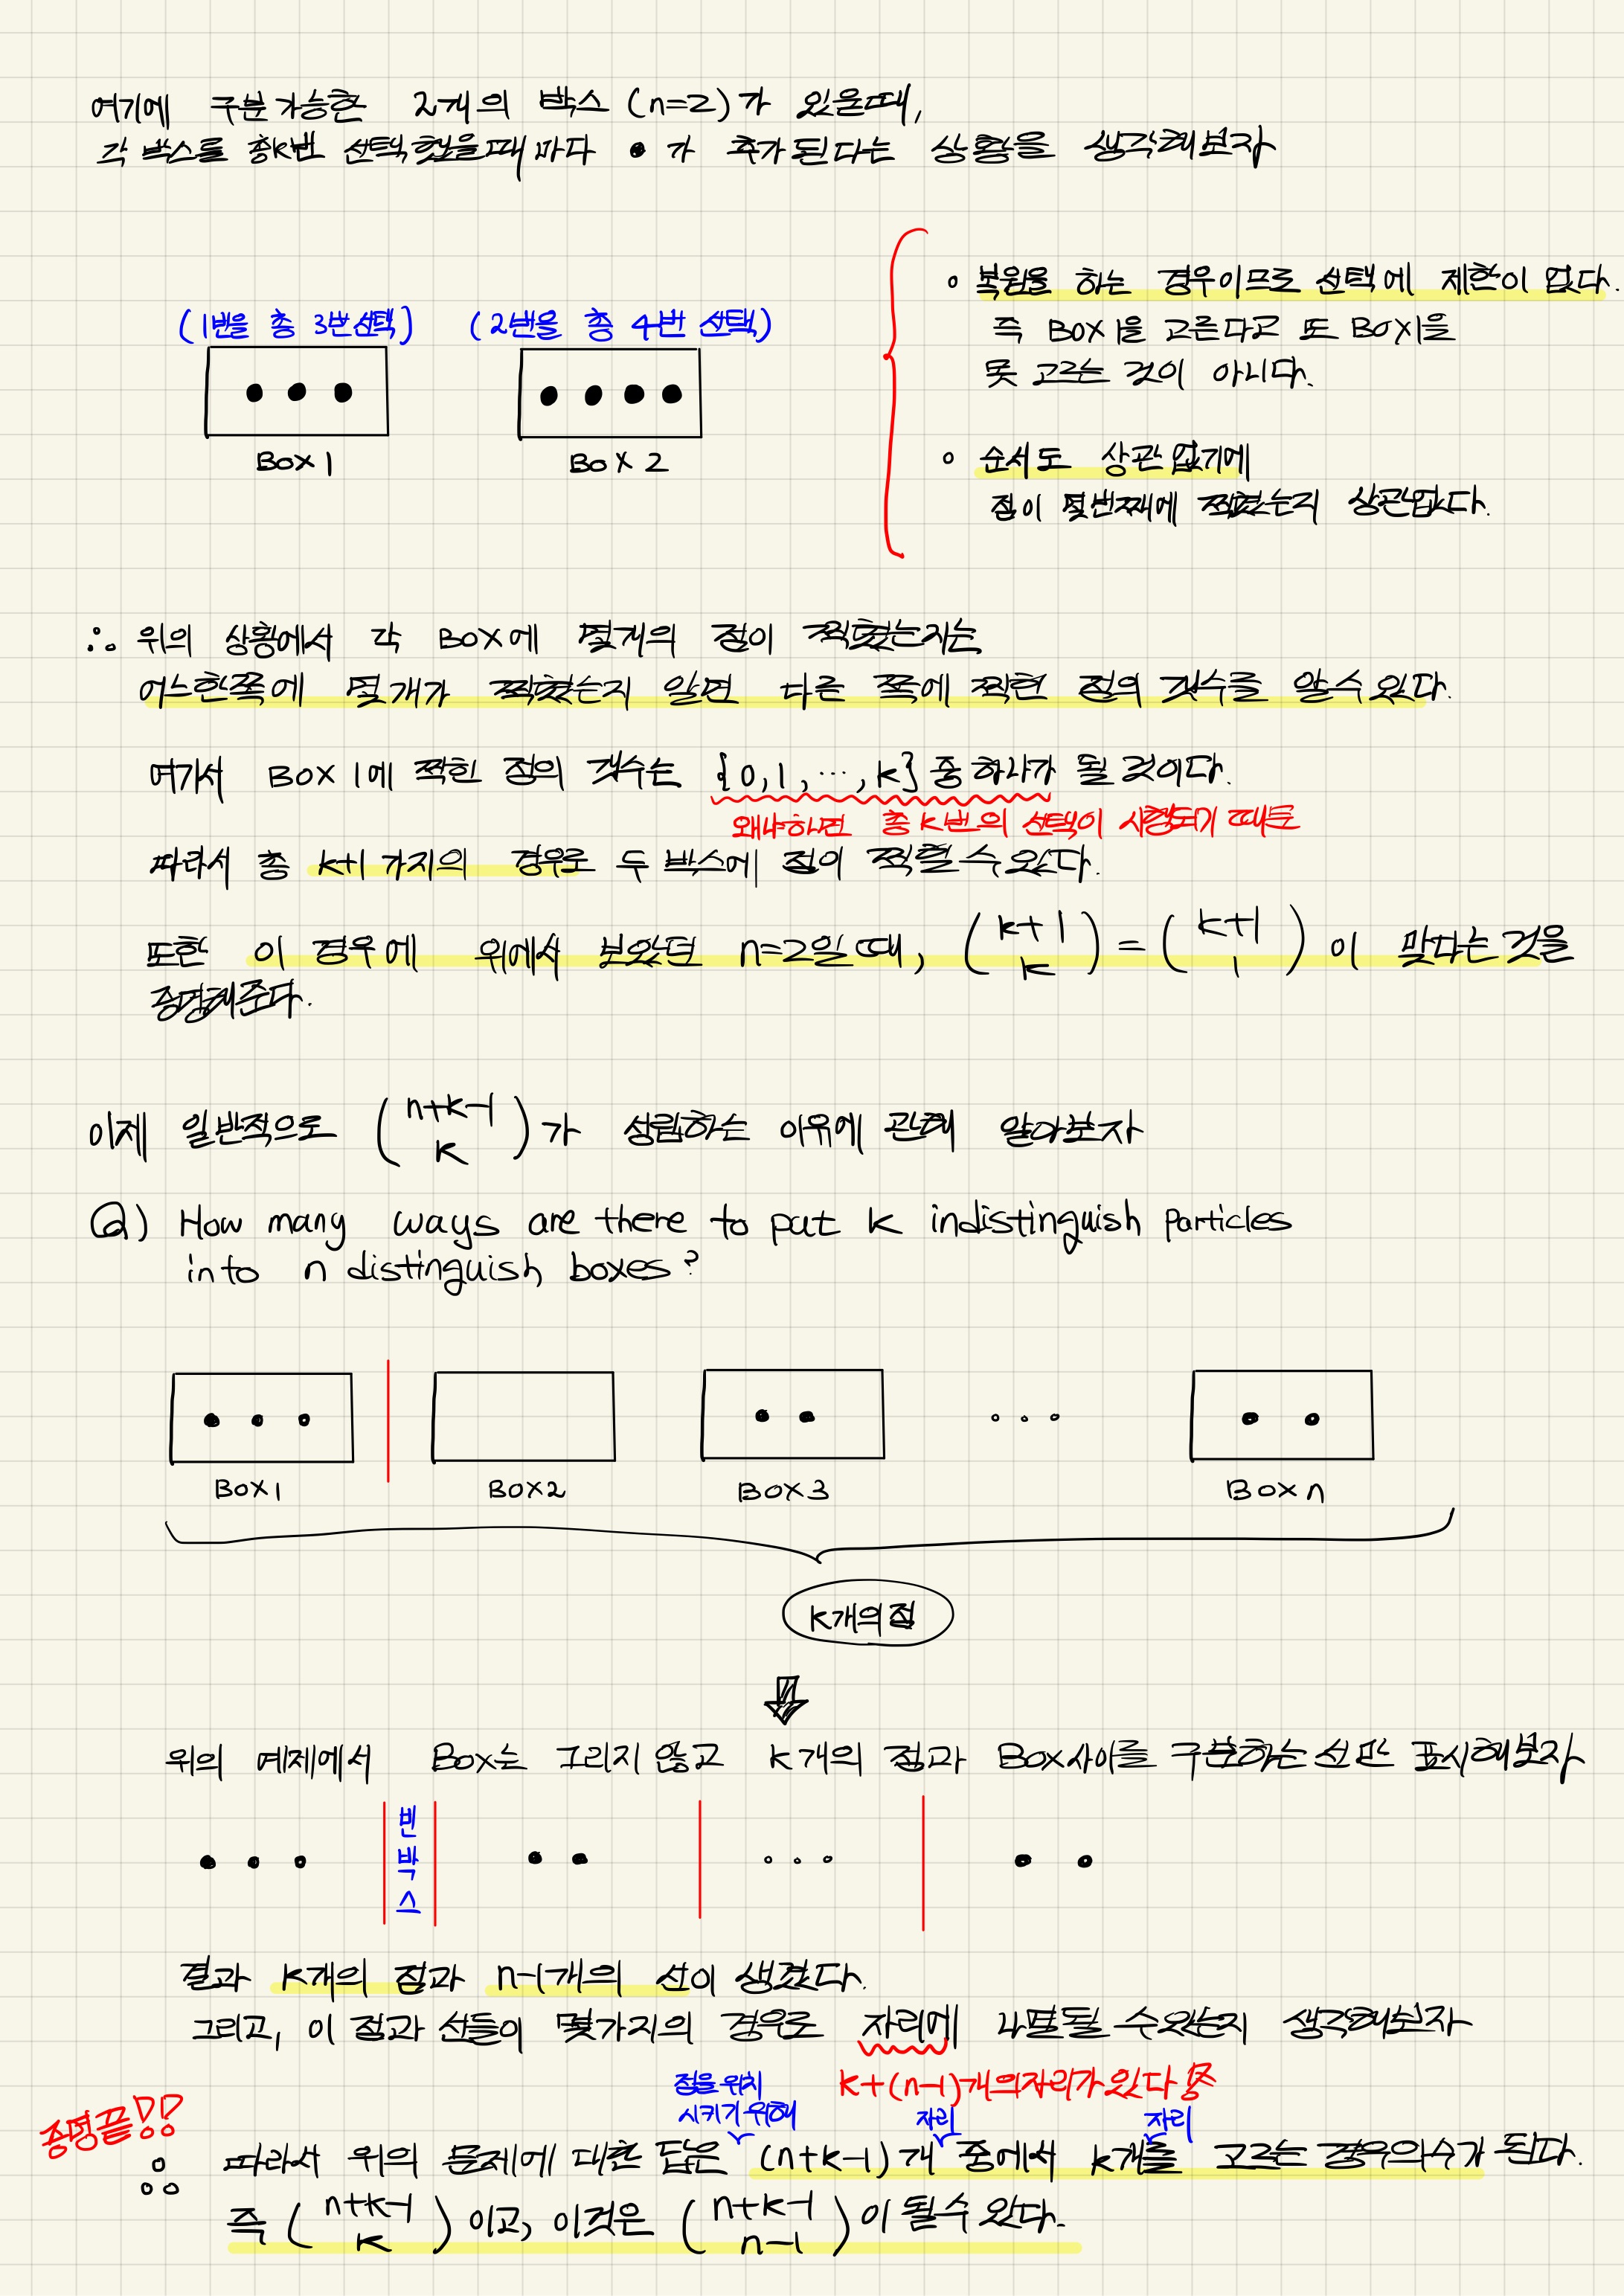 여기에 구분 가능한 2개의 박스 (n=2)가 있을때,
각 박스를 총k번 선택 했을때 마다 ● 가 추가 된다는 상황을 생각해보자
(1번을 총 3번선택) (2번을 총 4번 선택)
BOX 1 BOX 2
◦ 복원을 하는 경우이므로 선택에 제한이 없다.
즉 BOX 1을 고른다고 또 BOX1을
못 고르는 것이 아니다.
◦ 순서도 상관 없기에
점이 몇번째에 찍혔는지 상관없다.
∴ 위의 상황에서 각 BOX에 몇개의 점이 찍혔는지는
어느한쪽에 몇 개가 찍혔는지 알면 다른 쪽에 찍힌 점의 갯수를 알수 있다.
여기서 BOX 1에 찍힌 점의 갯수는 {0, 1, ⋯, k} 중 하나가 될 것이다.
왜냐하면 총 k번의 선택이 시행되기 때문
따라서 총 k+1 가지의 경우로 두 박스에 점이 찍힐 수 있다.
또한 이 경우에 위에서 보았던 n=2일 때, (k+1 k) = (k+1 1) 이 맞다는 것을
증명해준다.
이제 일반적으로 (n+k-1 k) 가 성립하는 이유에 관해 알아보자
Q) How many ways are there to put k indistinguish particles
into n distinguish boxes?
BOX1 BOX2 BOX3 ◦ ◦ ◦ BOX n
k개의 점
위의 예제에서 Box는 그리지 않고 k 개의 점과 Box사이를 구분하는 선 만 표시해보자
빈 박스
결과 k개의 점과 n-1개의 선이 생겼다.
그리고, 이 점과 선들이 몇가지의 경우로 자리에 나열될 수있는지 생각해보자
k+(n-1)개의자리가 있다
점을 위치
시키기 위해 자리 자리
증명끝!!
∴ 따라서 위의 문제에 대한 답은 (n+k-1)개 중에서 k개를 고르는 경우의수가 된다.
즉 (n+k-1 k) 이고, 이것은 (n+k-1 n-1) 이 될수 있다.